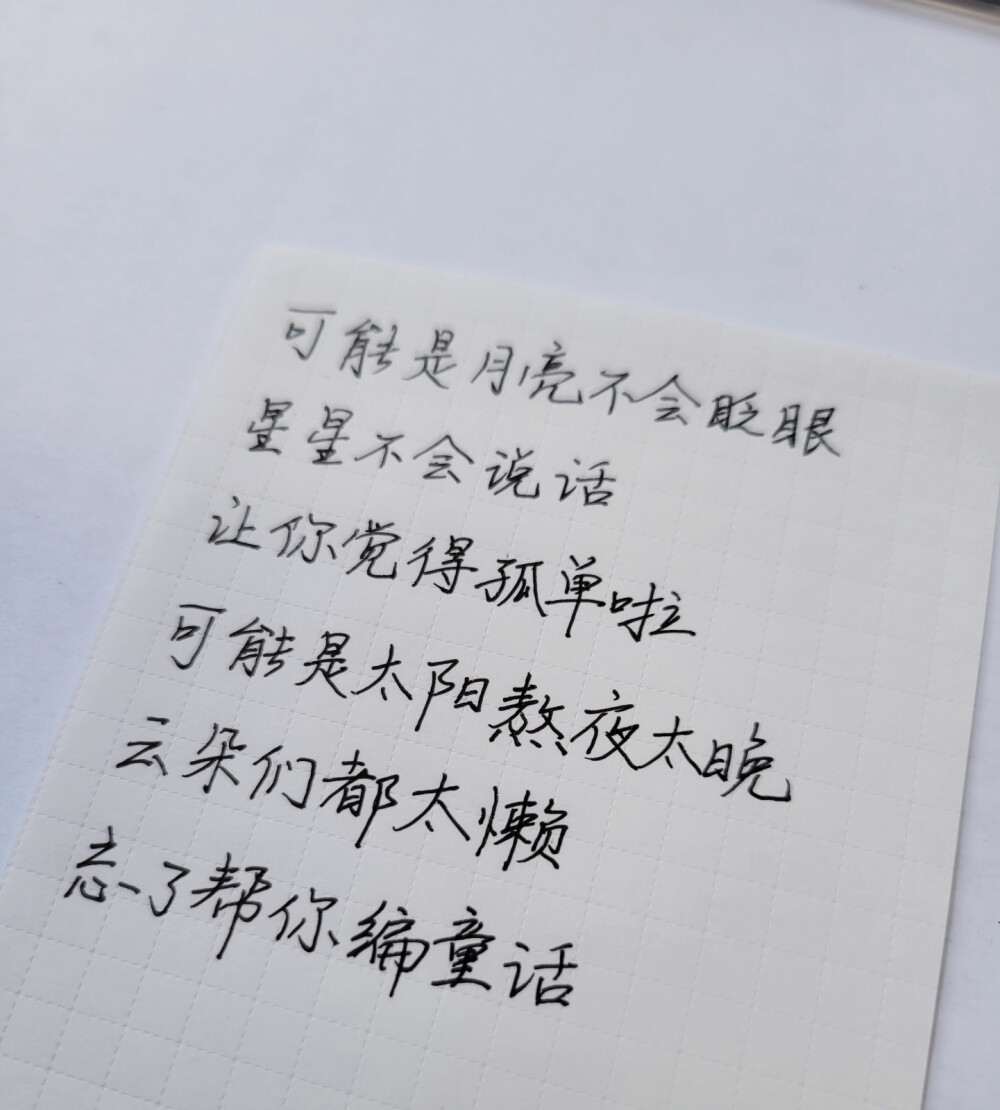 可能是月亮不会眨眼
星星不会说话
让你觉得孤单啦
可能是太阳熬夜太晚
云朵们都太懒
忘了帮你编童话